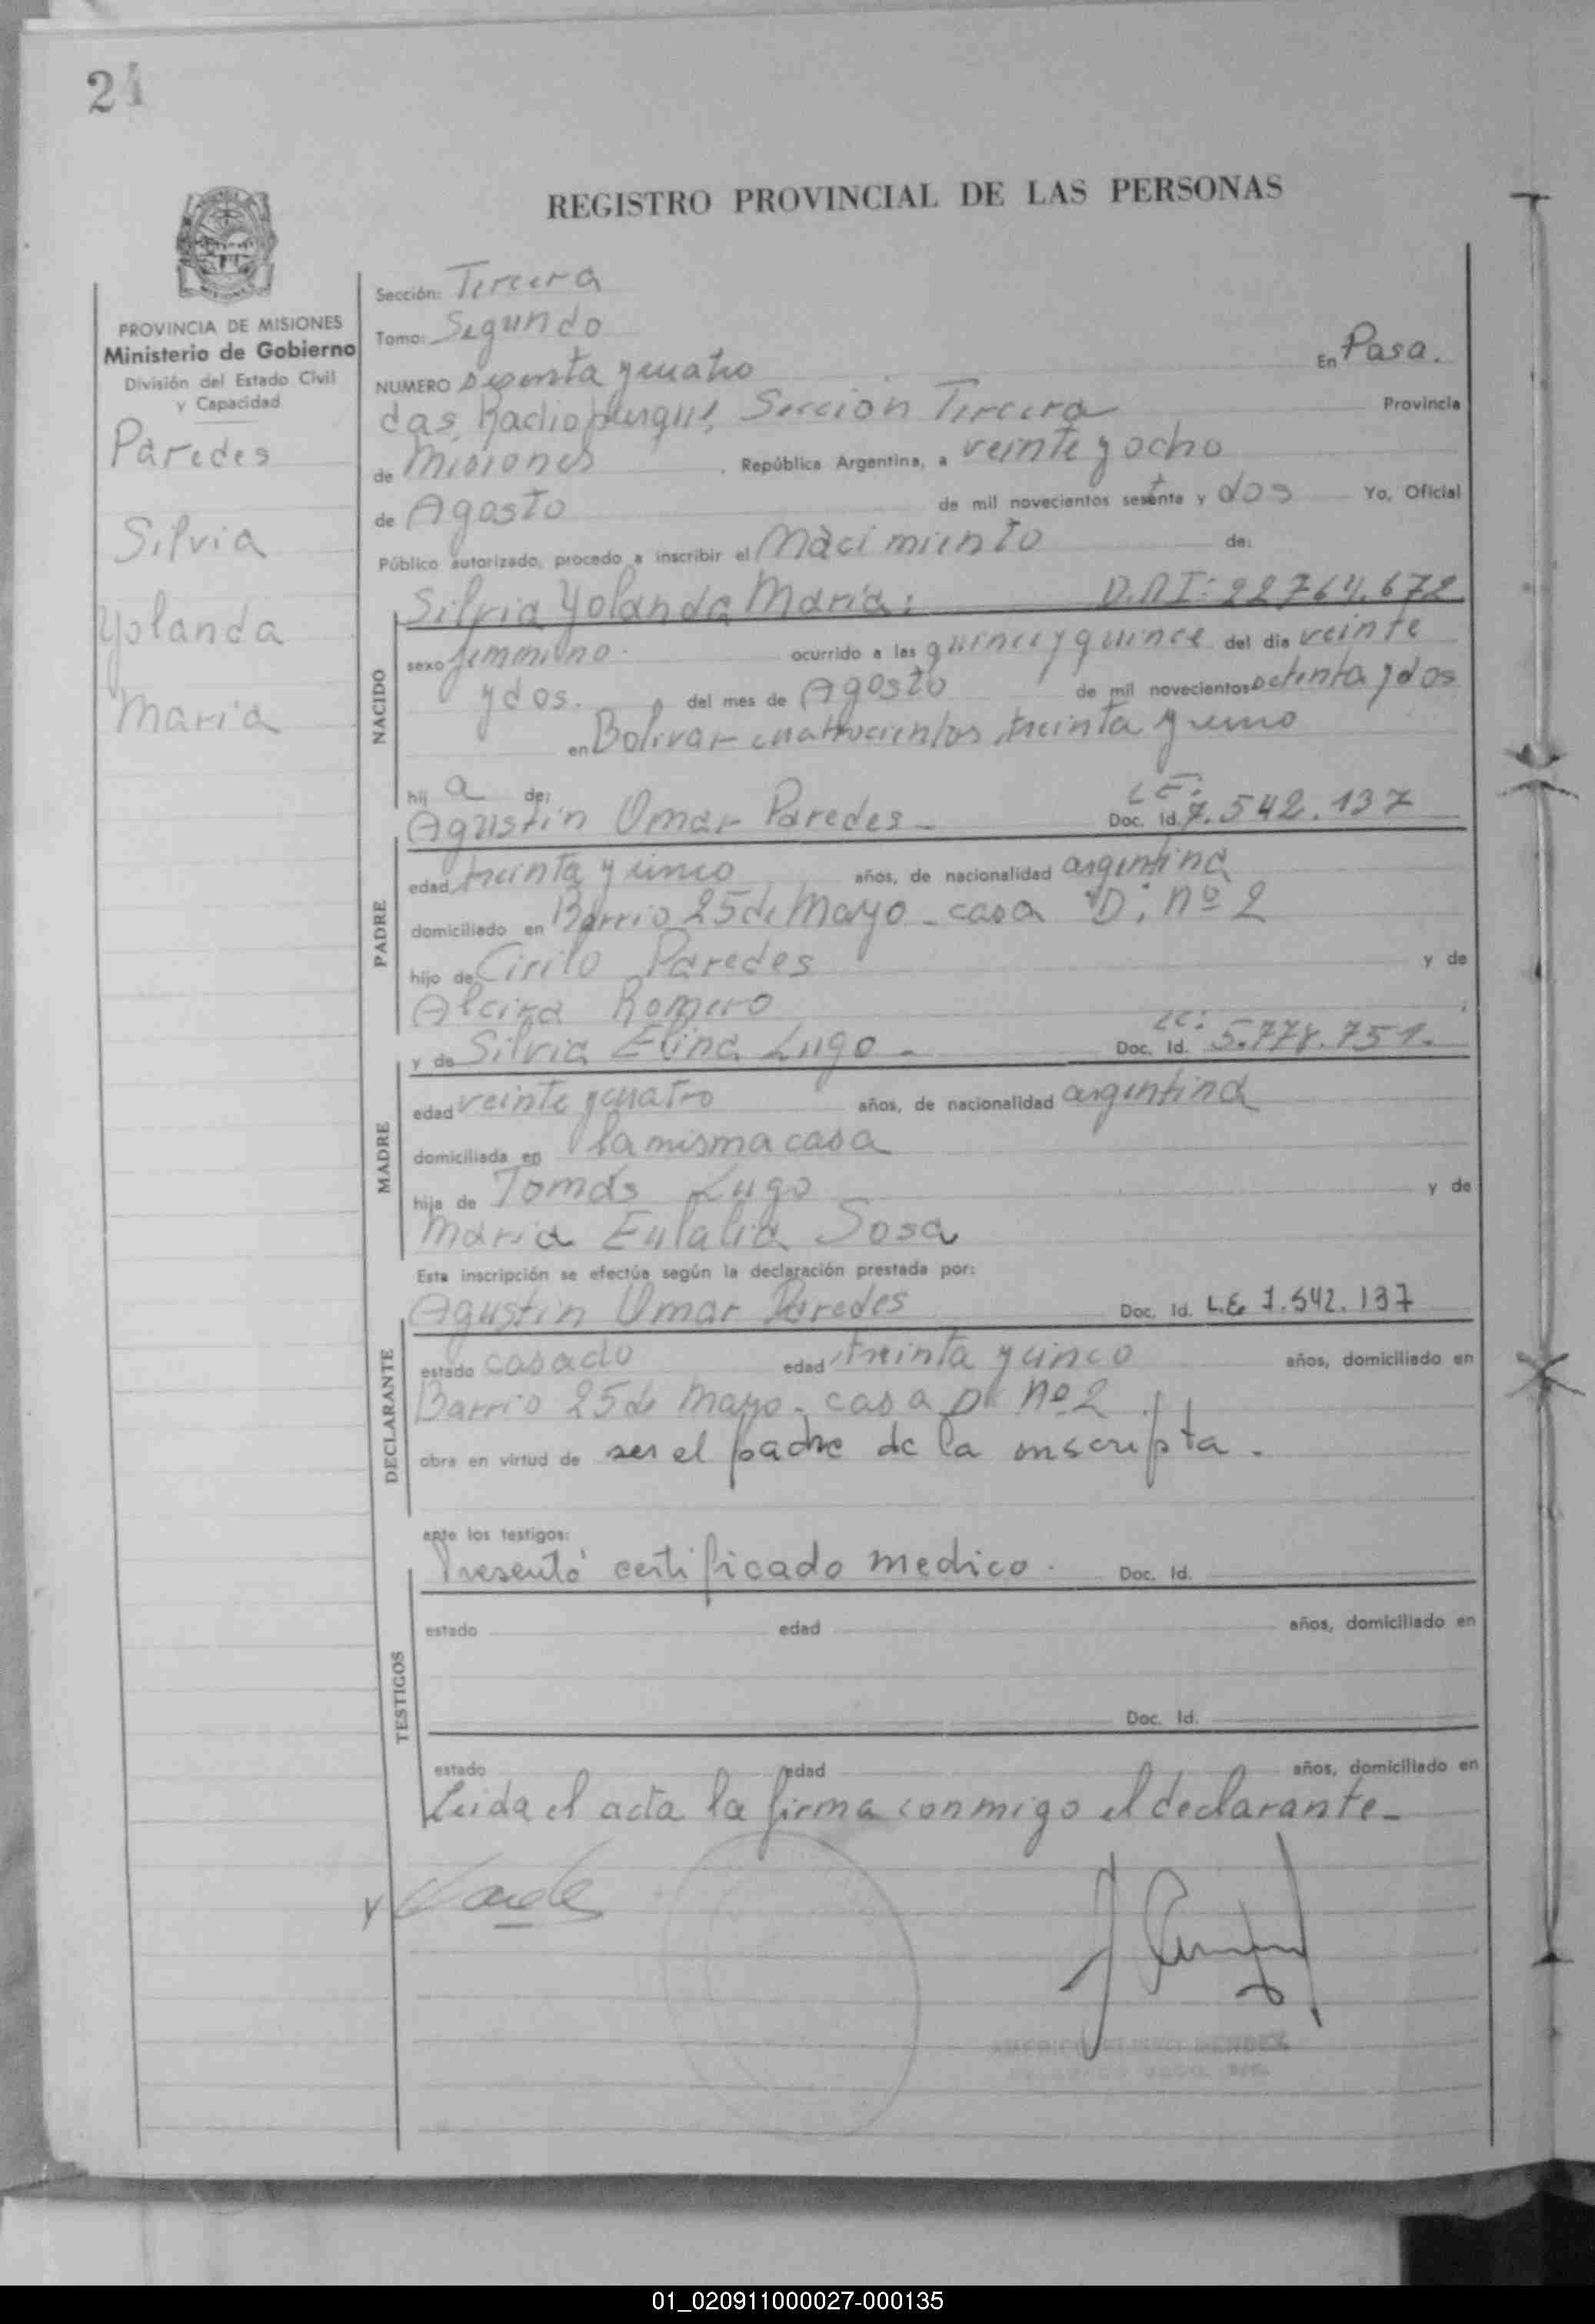 24
REGISTRO PROVINCIAL DE LAS PERSONAS
PROVINCIA DE MISIONES
Ministerio de Gobierno
División del Estado Civil
y Capacidad
Paredes
Silvia
Yolanda
Maria
Sección: Tercera
Tomo: Segundo
NUMERO y cuatro En Posa.
das, Sección Tercera Provincia
de Misiones República Argentina, a veinte y ocho
de Agosto de mil novecientos sesenta y dos Yo, Oficial
Público autorizado, procedo a inscribir el Nacimiento de:
Silvia Yolanda Maria: D.N.I: 22.764.672
NACIDO
sexo femenino. ocurrido a las quince y quince del dia veinte
y dos. del mes de Agosto de mil novecientos setenta y dos
en Bolivar cuatrocientos treinta y uno
hij a de:
Agustin Omar Paredes - Doc. Id. L E: 7.542.137
PADRE
edad treinta y cinco años, de nacionalidad argentina
domiciliado en Barrio 25 de Mayo - casa "D" Nº 2
hijo de Cirilo Paredes y de
Alcira Romero
y de Silvia Elina Lugo - Doc. Id. LC: 5.778.751.
MADRE
edad veinte y cuatro años, de nacionalidad argentina
domiciliada en la misma casa
hija de Tomás Lugo y de
Maria Eulalia Sosa
Esta inscripción se efectúa según la declaración prestada por:
Agustin Omar Paredes Doc. Id. L.E. 7.542.137
DECLARANTE
estado casado edad treinta y cinco años, domiciliado en
Barrio 25 de Mayo - casa D Nº 2
obra en virtud de ser el padre de la inscripta.
ante los testigos:
Presentó certificado medico. Doc. Id.
TESTIGOS
estado edad años, domiciliado en
Doc. Id.
estado edad años, domiciliado en
Leida el acta la firma conmigo el declarante-
01_020911000027-000135